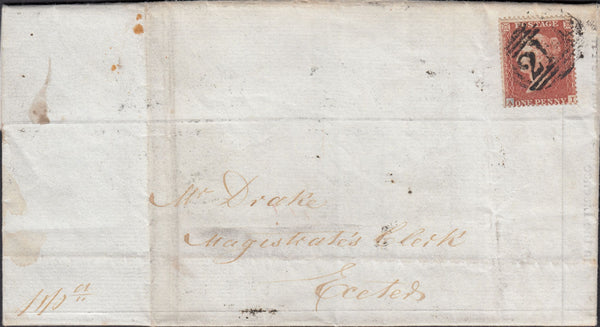 POSTAGE
21
ONE PENNY
Mr. Drake
Magistrate's Clerk
Exeter